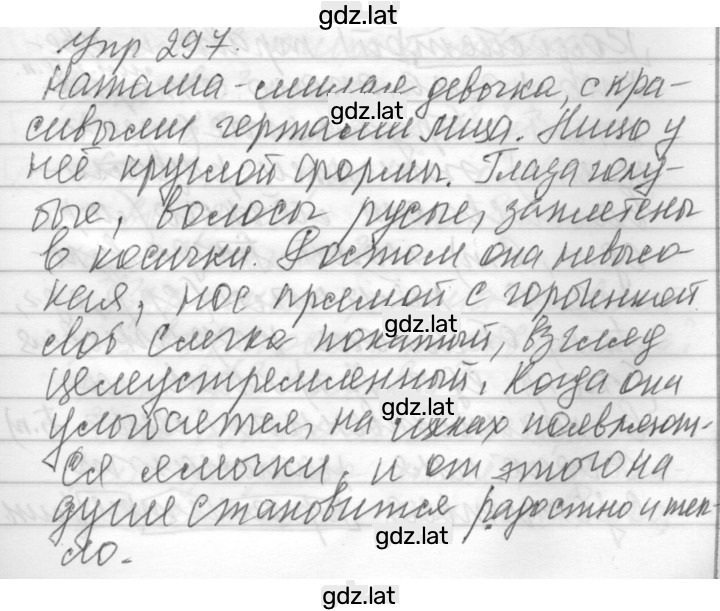 gdz.lat
Упр 297.
Наташа - милая девочка, с кра-
gdz.lat
сивыми чертами лица. Лицо у
неё круглой формы. Глаза голу-
бые, волосы русые, заплетены
gdz.lat
в косички. Ростом она невысо-
кая, нос прямой с горбинкой
gdz.lat
лоб слегка покатый, взгляд
целеустремленный. Когда она
gdz.lat
улыбается, на щеках появляют-
ся ямочки, и от этого на
душе становится радостно и теп-
gdz.lat
ло.
gdz.lat